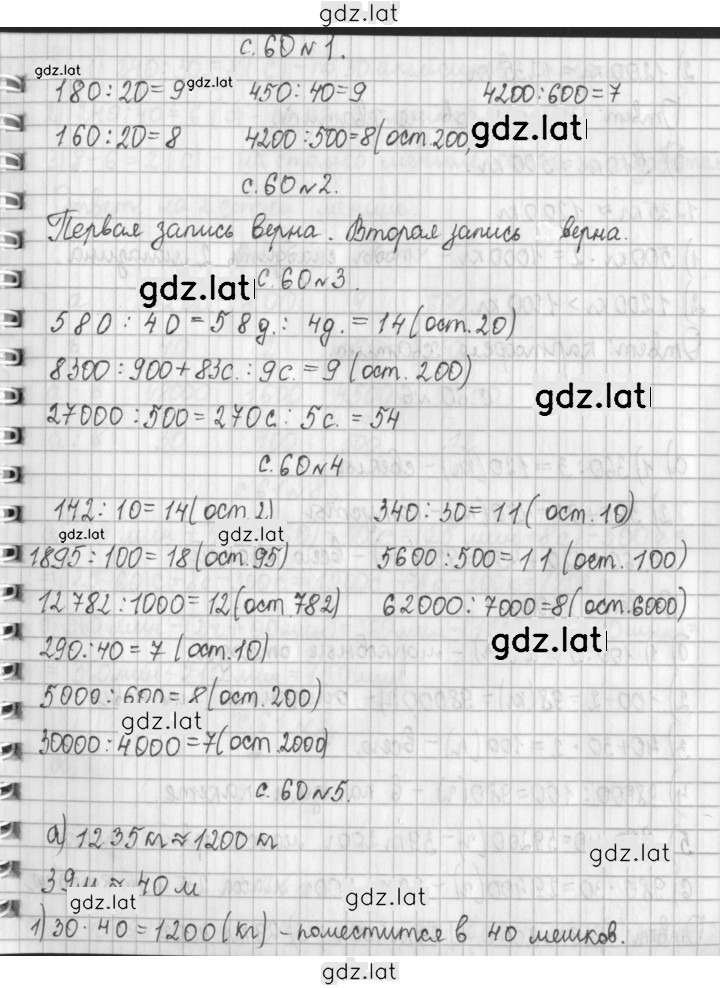 gdz.lat
с. 60 № 1.
gdz.lat
180 : 20 = 9 gdz.lat 450 : 40 = 9 4200 : 600 = 7
160 : 20 = 8 4200 : 500 = 8 (ост. 200, gdz.lat
с. 60 № 2.
Первая запись верна. Вторая запись верна.
gdz.lat с. 60 № 3.
580 : 40 = 58 д. : 4 д. = 14 (ост. 20)
8300 : 900 + 83 с. : 9 с. = 9 (ост. 200)
gdz.lat
27000 : 500 = 270 с. : 5 с. = 54
с. 60 № 4
142 : 10 = 14 (ост. 2) 340 : 30 = 11 (ост. 10)
gdz.lat gdz.lat
1895 : 100 = 18 (ост. 95) 5600 : 500 = 11 (ост. 100)
12 782 : 1000 = 12 (ост. 782) 62000 : 7000 = 8 (ост. 6000)
290 : 40 = 7 (ост. 10) gdz.lat
5000 : 600 = 8 (ост. 200)
gdz.lat
30000 : 4000 = 7 (ост. 2000)
с. 60 № 5.
а) 1235 кг ≈ 1200 кг
gdz.lat
39 м ≈ 40 м
gdz.lat gdz.lat
1) 30 · 40 = 1200 (кг) – поместится в 40 мешков.
gdz.lat